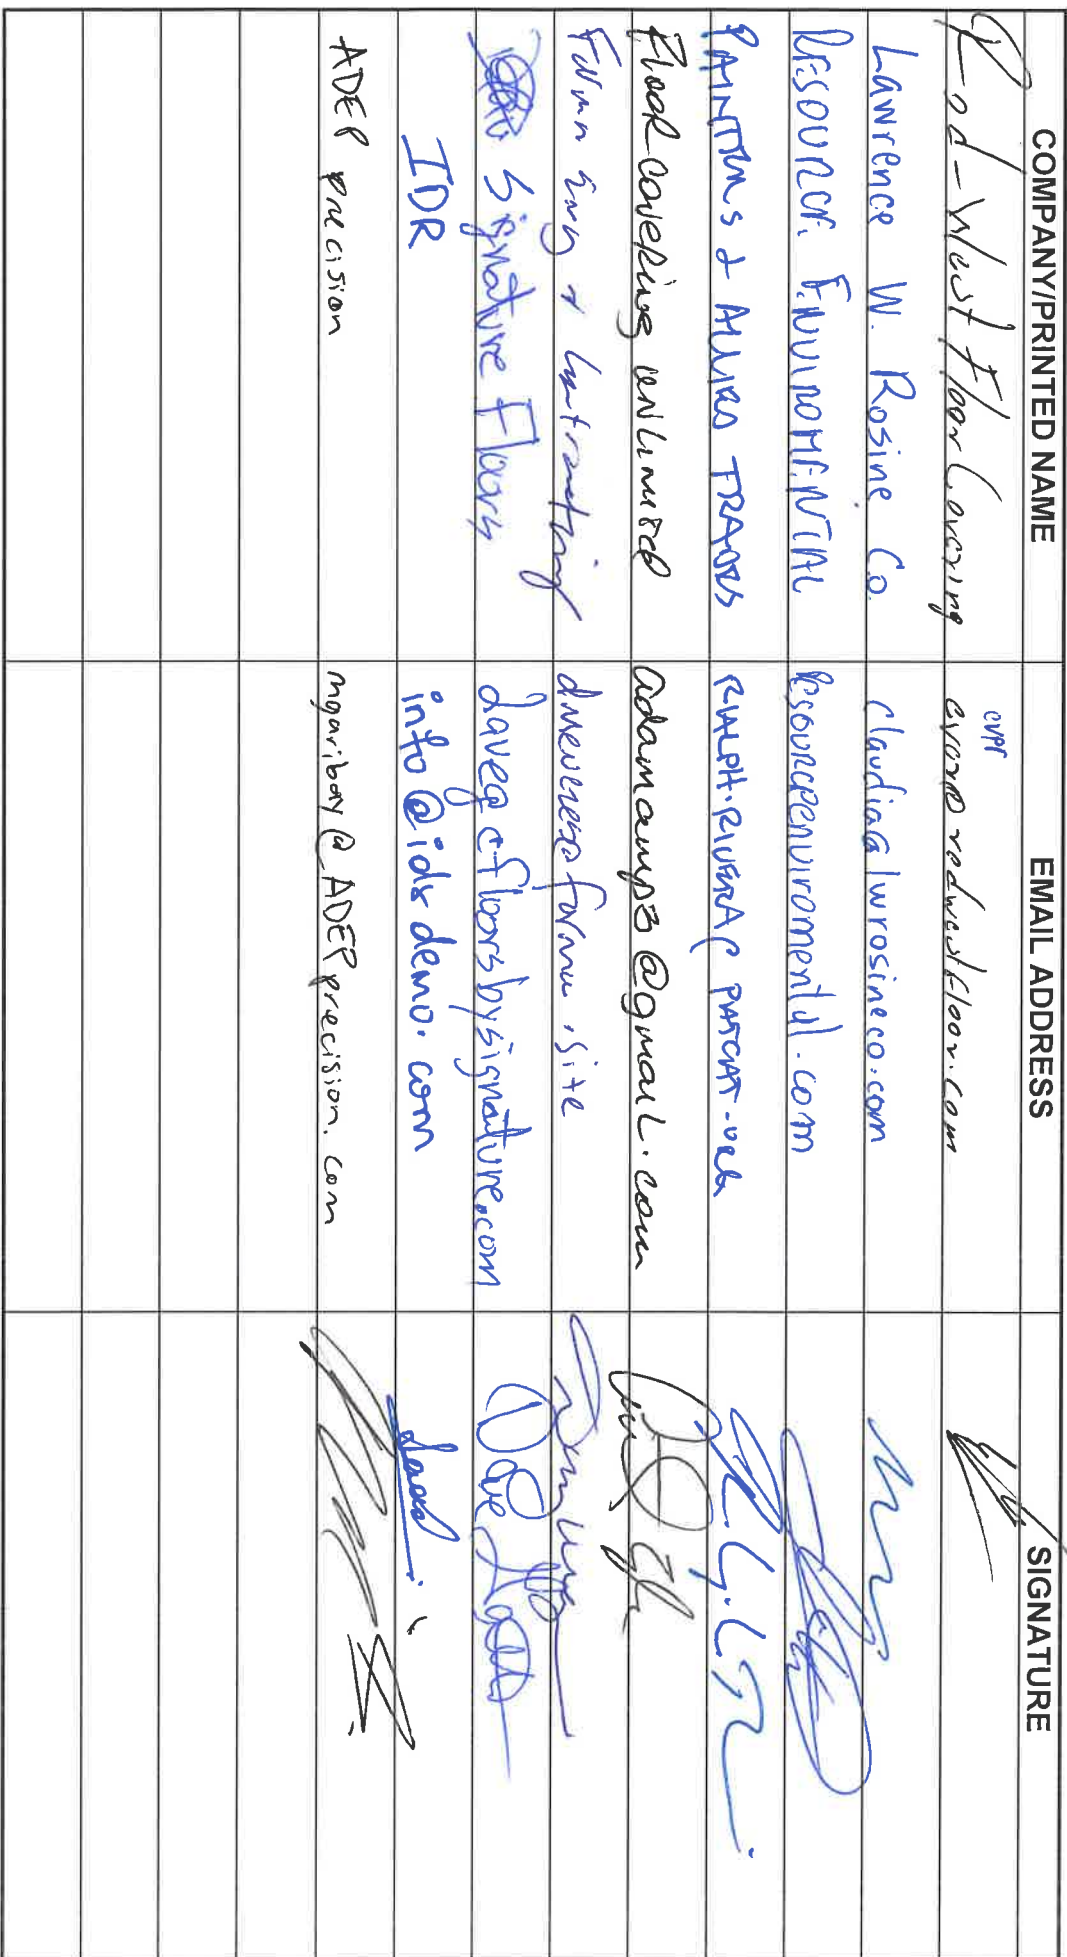 COMPANY/PRINTED NAME EMAIL ADDRESS SIGNATURE
Rod-West Floor Covering redwestfloor.com
Lawrence W. Rosine Co. claudia@lwrosineco.com
RESOURCE ENVIROMENTAL resourceenviromental.com
PAINTERS & ALLIED TRADES RALPH.RIVERA@
Floor covering unlimited adamawp3@gmail.com
Forma Eng & Contracting forma.site
Signature Floors dave@cfloorsbysignature.com Dave
IDR info@idsdemo.com
ADEP precision mgaribay@ADEPprecision.com